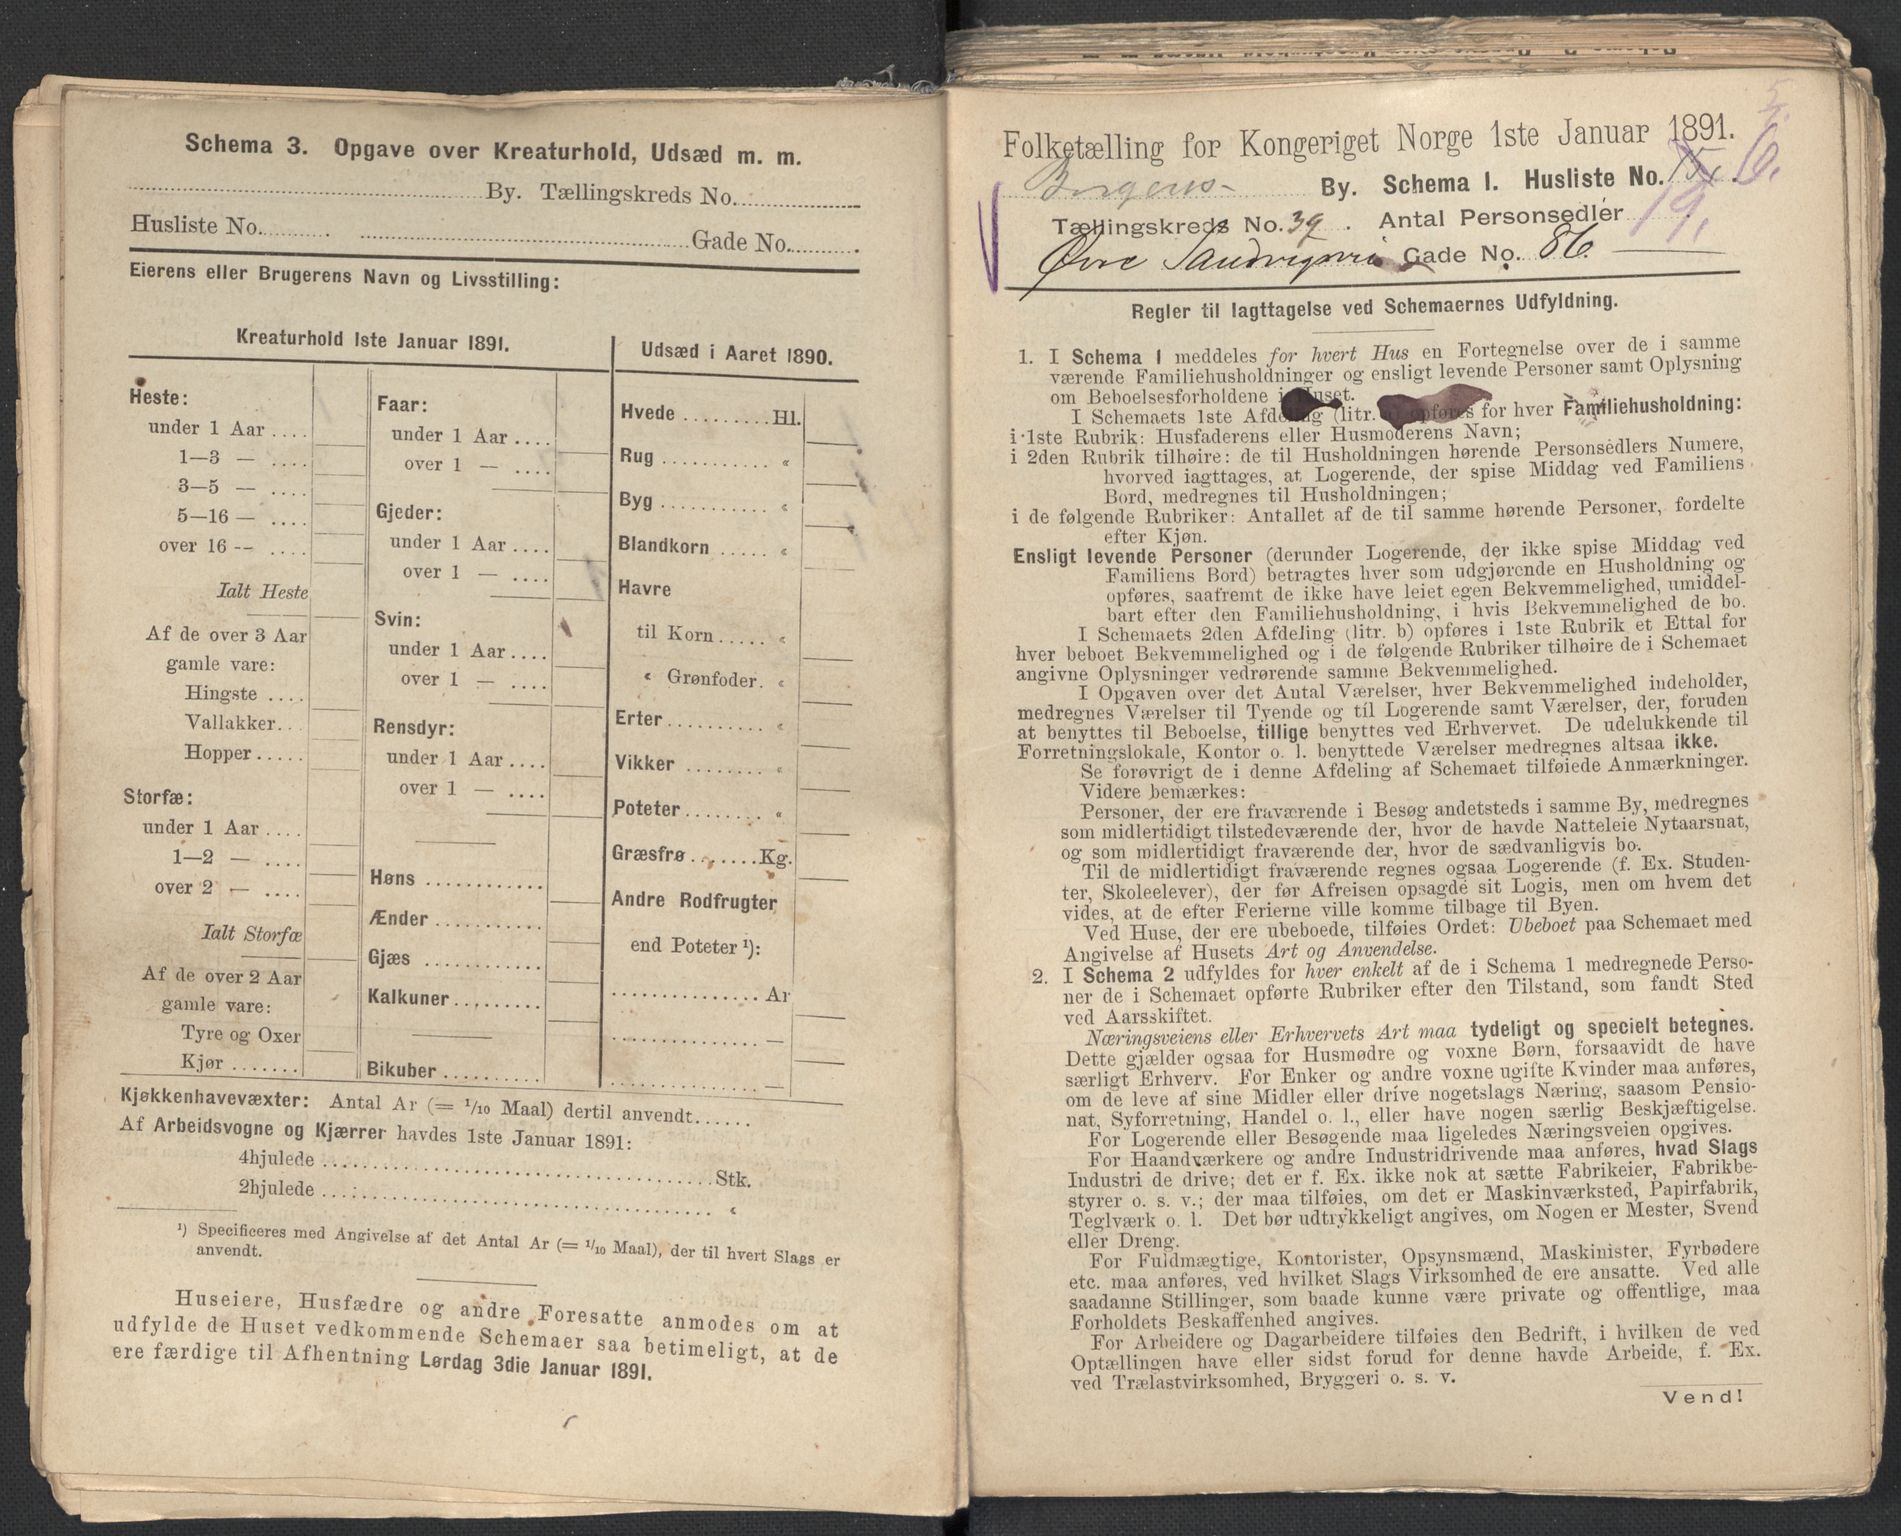 Schema 3. Opgave over Kreaturhold, Udsæd m. m.
By. Tællingskreds No.
Husliste No. Gade No.
Eierens eller Brugerens Navn og Livsstilling:
Kreaturhold 1ste Januar 1891.
Heste:
under 1 Aar ....
1—3 — ....
3—5 — ....
5—16 — ....
over 16 -- ....
Ialt Heste
Af de over 3 Aar
gamle vare:
Hingste ....
Vallakker...
Hopper.....
Storfæ:
under 1 Aar ....
1—2 — ....
over 2 — ....
Ialt Storfæ
Af de over 2 Aar
gamle vare:
Tyre og Oxer
Kjør .......
Faar:
under 1 Aar ....
over 1 — ....
Gjeder:
under 1 Aar ....
over 1 — ....
Svin:
under 1 Aar....
over 1 — ....
Rensdyr:
under 1 Aar ....
over 1 — ....
Høns ............
Ænder ...........
Gjæs ............
Kalkuner.........
Bikuber ..........
Udsæd i Aaret 1890.
Hvede .........Hl.
Rug ........... «
Byg ........... «
Blandkorn ..... «
Havre
til Korn ..... «
« Grønfoder. «
Erter ......... «
Vikker ........ «
Poteter........ «
Græsfrø .......Kg.
Andre Rodfrugter
end Poteter ¹):
............... Ar
............... —
............... —
Kjøkkenhavevæxter: Antal Ar (= 1/10 Maal) dertil anvendt......
Af Arbeidsvogne og Kjærrer havdes 1ste Januar 1891:
4hjulede ....................................Stk.
2hjulede .................................... «
¹) Specificeres med Angivelse af det Antal Ar (= 1/10 Maal), der til hvert Slags er
anvendt.
Huseiere, Husfædre og andre Foresatte anmodes om at
udfylde de Huset vedkommende Schemaer saa betimeligt, at de
ere færdige til Afhentning Lørdag 3die Januar 1891.
Folketælling for Kongeriget Norge 1ste Januar 1891.
Bergens By. Schema 1. Husliste No. 6.
Tællingskreds No. 39. Antal Personsedler 19.
Øvre Sandvigsvei Gade No. 86.
Regler til Iagttagelse ved Schemaernes Udfyldning.
1. I Schema 1 meddeles for hvert Hus en Fortegnelse over de i samme
værende Familiehusholdninger og ensligt levende Personer samt Oplysning
om Beboelsesforholdene i Huset.
I Schemaets 1ste Afdeling (litr. a) opføres for hver Familiehusholdning:
i 1ste Rubrik: Husfaderens eller Husmoderens Navn;
i 2den Rubrik tilhøire: de til Husholdningen hørende Personsedlers Numere,
hvorved iagttages, at Logerende, der spise Middag ved Familiens
Bord, medregnes til Husholdningen;
i de følgende Rubriker: Antallet af de til samme hørende Personer, fordelte
efter Kjøn.
Ensligt levende Personer (derunder Logerende, der ikke spise Middag ved
Familiens Bord) betragtes hver som udgjørende en Husholdning og
opføres, saafremt de ikke have leiet egen Bekvemmelighed, umiddel-
bart efter den Familiehusholdning, i hvis Bekvemmelighed de bo.
I Schemaets 2den Afdeling (litr. b) opføres i 1ste Rubrik et Ettal for
hver beboet Bekvemmelighed og i de følgende Rubriker tilhøire de i Schemaet
angivne Oplysninger vedrørende samme Bekvemmelighed.
I Opgaven over det Antal Værelser, hver Bekvemmelighed indeholder,
medregnes Værelser til Tyende og til Logerende samt Værelser, der, foruden
at benyttes til Beboelse, tillige benyttes ved Erhvervet. De udelukkende til
Forretningslokale, Kontor o. l. benyttede Værelser medregnes altsaa ikke.
Se forøvrigt de i denne Afdeling af Schemaet tilføiede Anmærkninger.
Videre bemærkes:
Personer, der ere fraværende i Besøg andetsteds i samme By, medregnes
som midlertidigt tilstedeværende der, hvor de havde Natteleie Nytaarsnat,
og som midlertidigt fraværende der, hvor de sædvanligvis bo.
Til de midlertidigt fraværende regnes ogsaa Logerende (f. Ex. Studen-
ter, Skoleelever), der før Afreisen opsagde sit Logis, men om hvem det
vides, at de efter Ferierne ville komme tilbage til Byen.
Ved Huse, der ere ubeboede, tilføies Ordet: Ubeboet paa Schemaet med
Angivelse af Husets Art og Anvendelse.
2. I Schema 2 udfyldes for hver enkelt af de i Schema 1 medregnede Perso-
ner de i Schemaet opførte Rubriker efter den Tilstand, som fandt Sted
ved Aarsskiftet.
Næringsveiens eller Erhvervets Art maa tydeligt og specielt betegnes.
Dette gjælder ogsaa for Husmødre og voxne Børn, forsaavidt de have
særligt Erhverv. For Enker og andre voxne ugifte Kvinder maa anføres,
om de leve af sine Midler eller drive nogetslags Næring, saasom Pensio-
nat, Syforretning, Handel o. l., eller have nogen særlig Beskjæftigelse.
For Logerende eller Besøgende maa ligeledes Næringsveien opgives.
For Haandværkere og andre Industridrivende maa anføres, hvad Slags
Industri de drive; det er f. Ex. ikke nok at sætte Fabrikeier, Fabrikbe-
styrer o. s. v.; der maa tilføies, om det er Maskinværksted, Papirfabrik,
Teglværk o. l. Det bør udtrykkeligt angives, om Nogen er Mester, Svend
eller Dreng.
For Fuldmægtige, Kontorister, Opsynsmænd, Maskinister, Fyrbødere
etc. maa anføres, ved hvilket Slags Virksomhed de ere ansatte. Ved alle
saadanne Stillinger, som baade kunne være private og offentlige, maa
Forholdets Beskaffenhed angives.
For Arbeidere og Dagarbeidere tilføies den Bedrift, i hvilken de ved
Optællingen have eller sidst forud for denne havde Arbeide, f. Ex.
ved Trælastvirksomhed, Bryggeri o. s. v.
Vend!